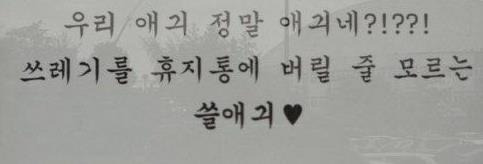 우리 애긔 정말 애긔네?!??!
쓰레기를 휴지통에 버릴 줄 모르는
쓸애긔♥